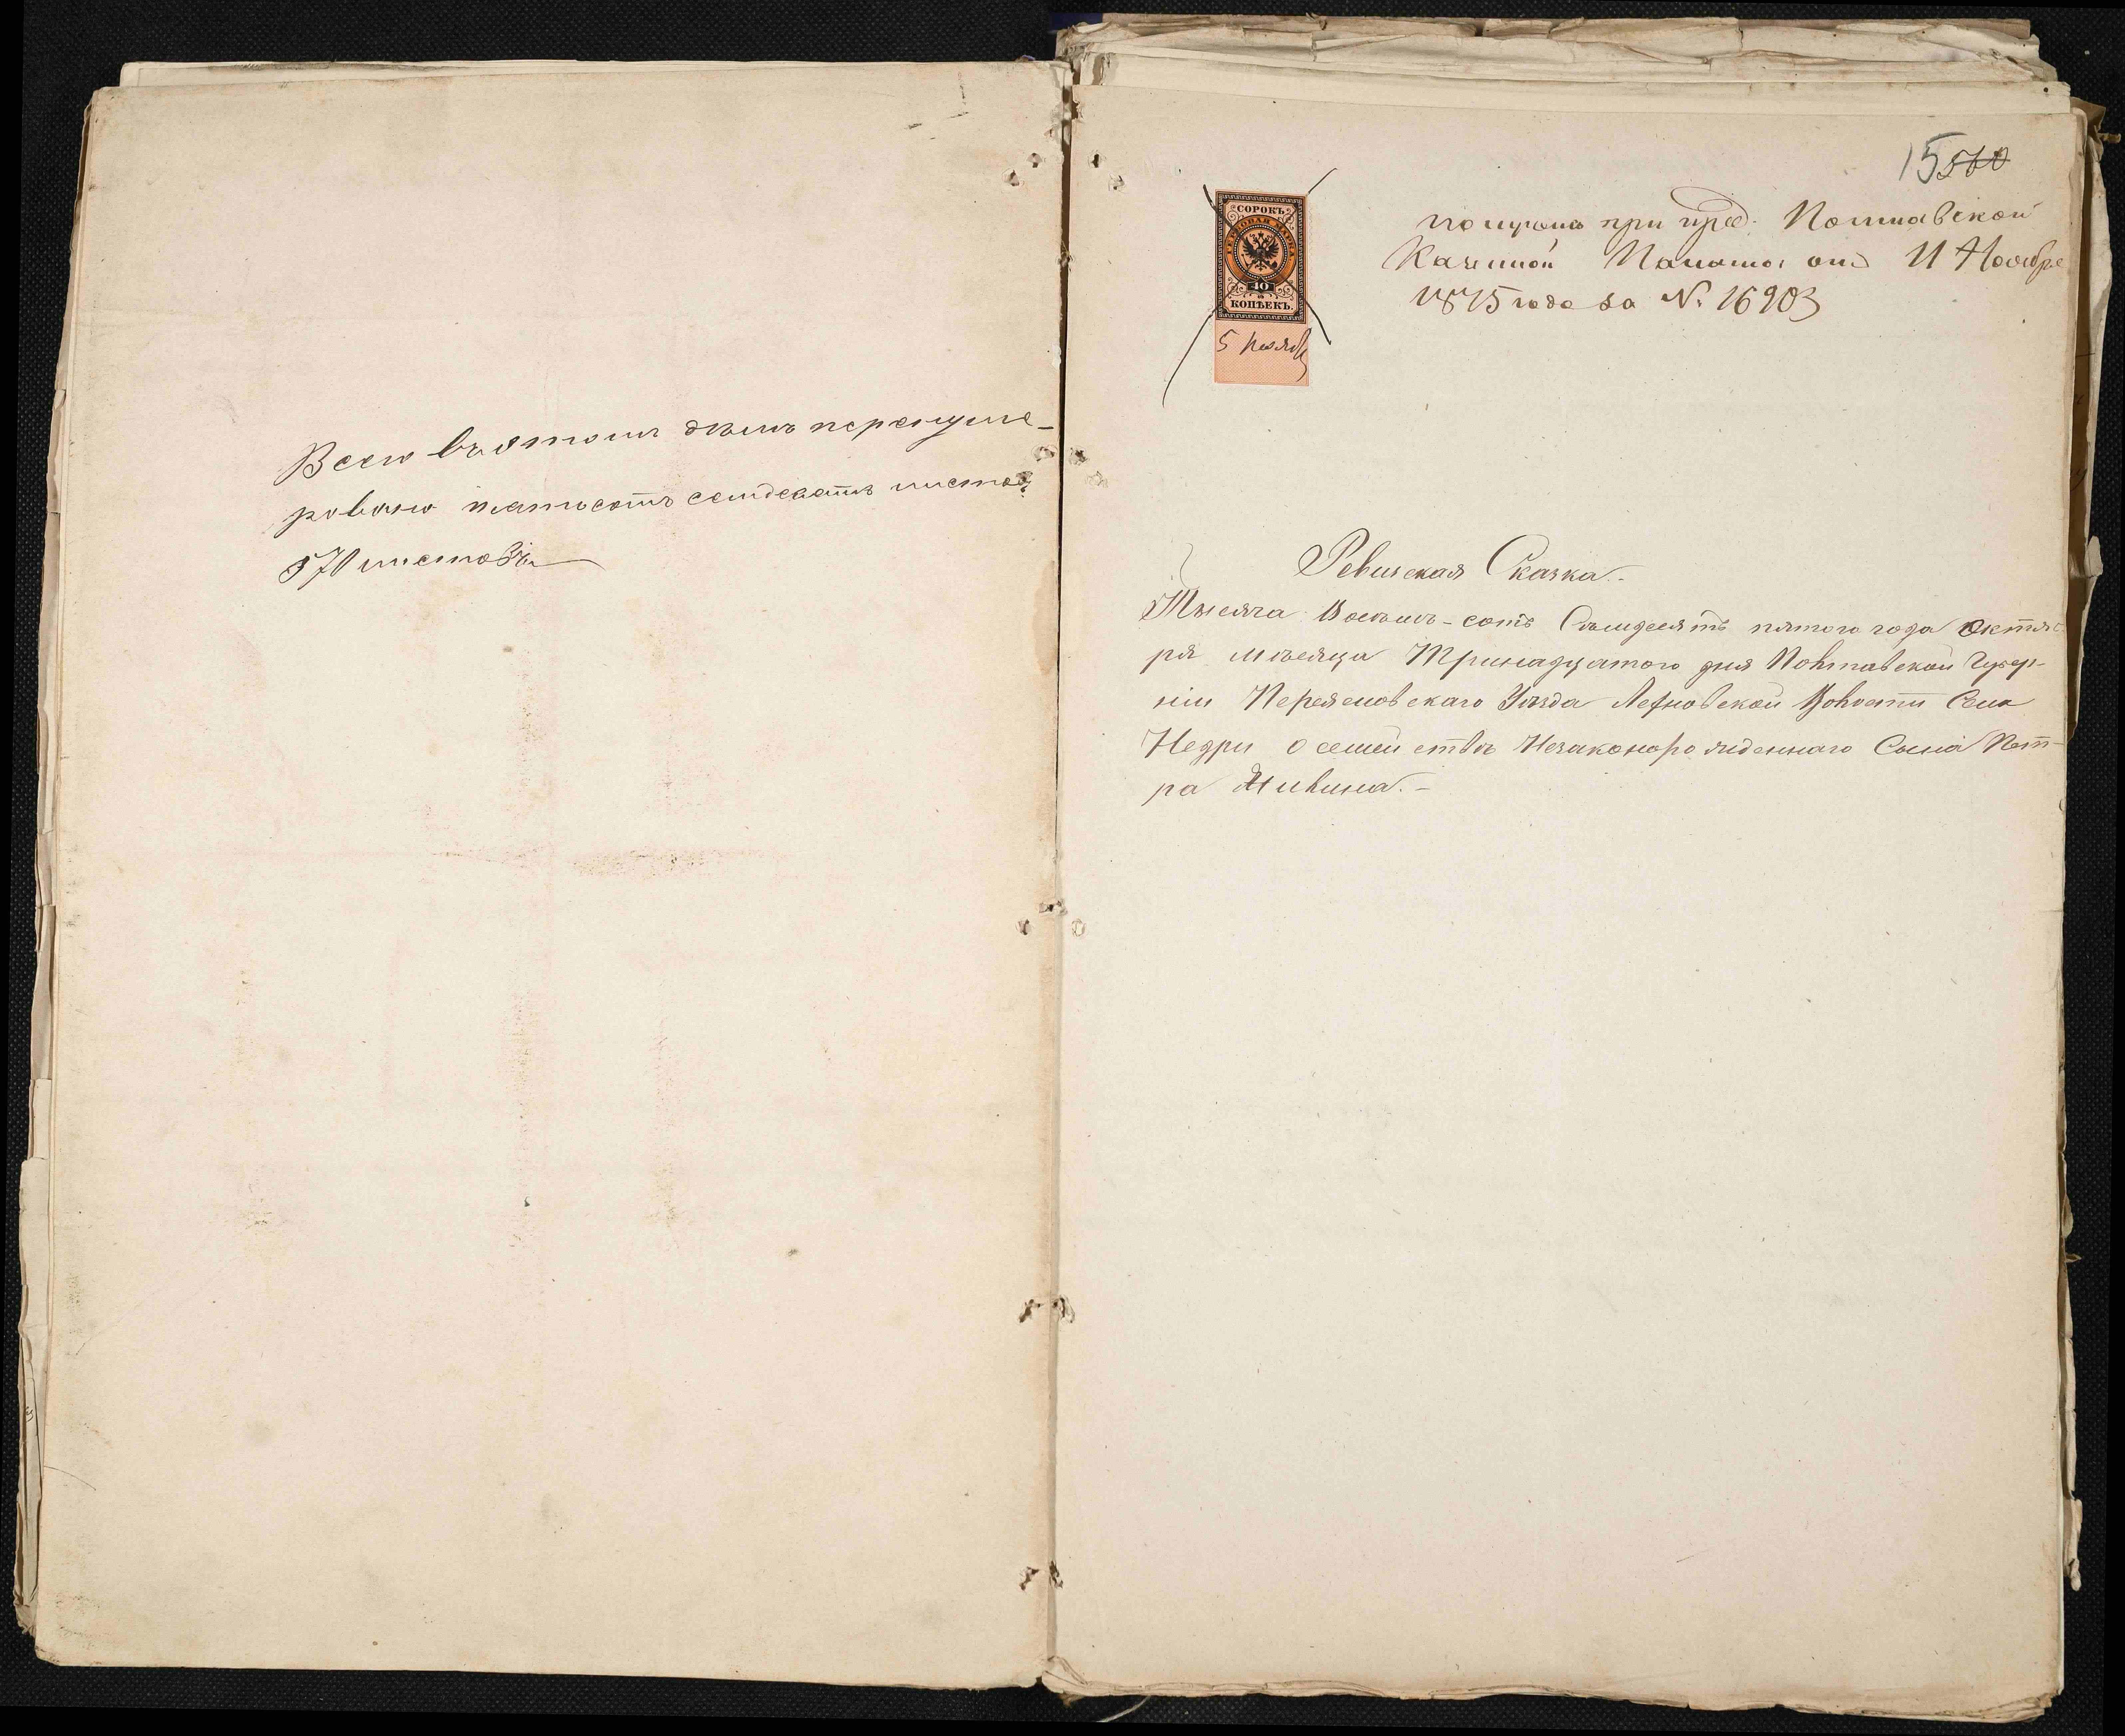 Всего въ этомъ дѣлѣ перенуме-
ровано пятьсотъ семдесятъ листовъ
570 листовъ
15 560
СОРОКЪ
ГЕРБОВАЯ МАРКА
40
КОПѢЕКЪ.
5 Ноября
получена при пред. Полтавской
Казенной Палаты отъ 11 Ноября
1875 года за № 16903
Ревизская Сказка.-
Тысяча Восемь-сотъ Семдесятъ пятого года Октяб
ря мѣсяца Тринадцатого дня Полтавской Губер-
ніи Переяславскаго Уѣзда Волости Села
Недри о семействѣ Незаконорожденнаго Сына Пет-
ра